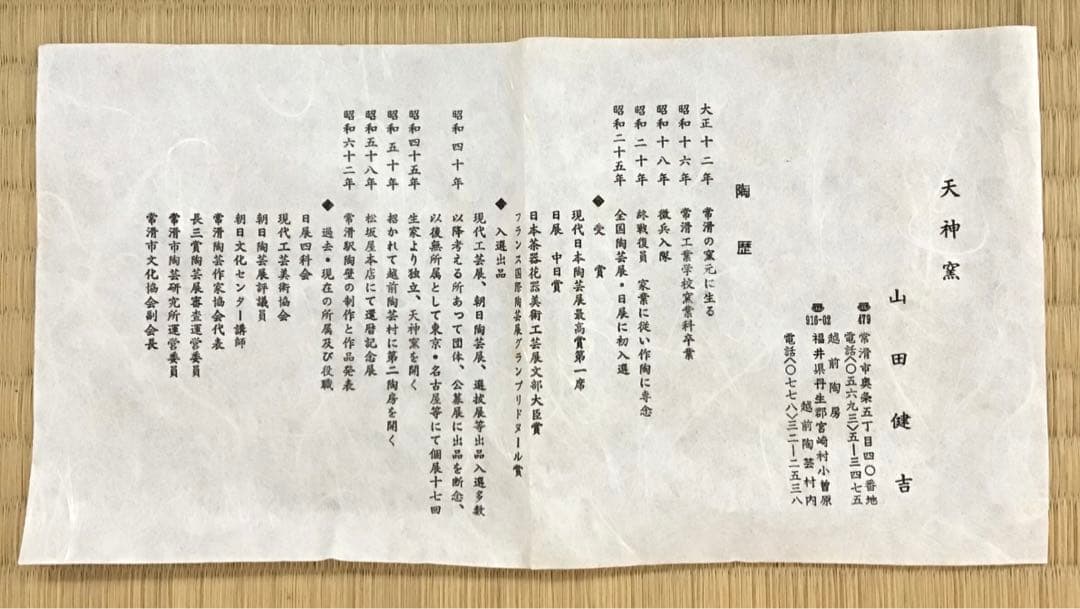 天神窯
山田健吉
〒479 常滑市奥条五丁目四〇番地
電話〈〇五六九三〉五―三四七五
越前陶房
〒916-02 福井県丹生郡宮崎村小曽原
越前陶芸村内
電話〈〇七七八〉三二―二五三八
陶歴
大正十二年 常滑の窯元に生る
昭和十六年 常滑工業学校窯業科卒業
昭和十八年 徴兵入隊
昭和二十年 終戦復員 家業に従い作陶に専念
昭和二十五年 全国陶芸展・日展に初入選
◆受賞
現代日本陶芸展最高賞第一席
日展 中日賞
日本茶器花器美術工芸展文部大臣賞
フランス国際陶芸展グランプリドヌール賞
◆入選出品
現代工芸展、朝日陶芸展、選抜展等出品入選多数
昭和四十年 以降考える所あって団体、公募展に出品を断念、
以後無所属として東京・名古屋等にて個展十七回
昭和四十五年 生家より独立、天神窯を開く
昭和五十年 招かれて越前陶芸村に第二陶房を開く
昭和五十八年 松坂屋本店にて還暦記念展
昭和六十二年 常滑駅陶壁の制作と作品発表
◆過去・現在の所属及び役職
日展四科会
現代工芸美術協会
朝日陶芸展評議員
朝日文化センター講師
常滑陶芸作家協会代表
長三賞陶芸展審査運営委員
常滑市陶芸研究所運営委員
常滑市文化協会副会長